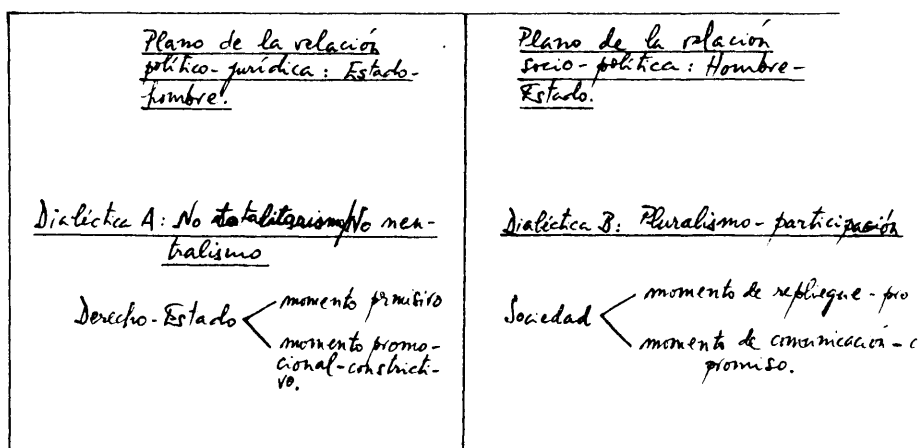 Plano de la relación
político-jurídica: Estado-
hombre.
Dialéctica A: No totalitarismo/No neu-
tralismo
Derecho-Estado
momento permisivo
momento promo-
cional-constricti-
vo.
Plano de la relación
socio-política: Hombre-
Estado.
Dialéctica B: Pluralismo-participación
Sociedad
momento de repliegue-pro
momento de comunicación-c
promiso.